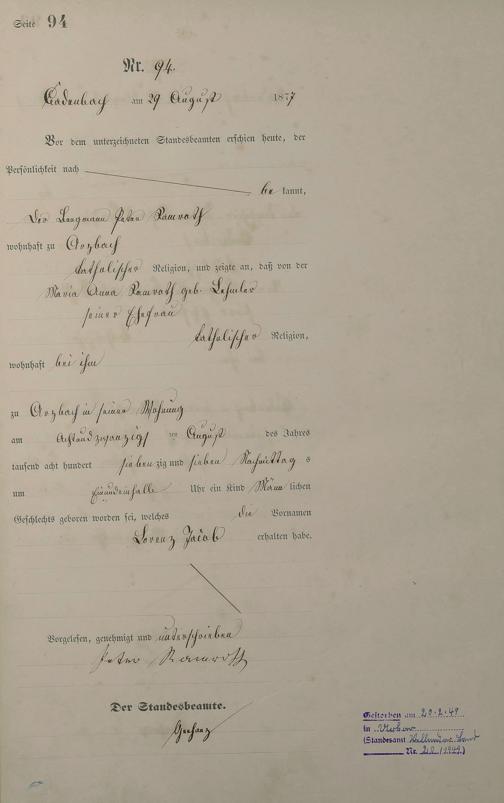 Seite 94
Nr. 94.
Cadenbach am 29 August 1877
Vor dem unterzeichneten Standesbeamten erschien heute, der
Persönlichkeit nach
be kannt,
Der Bergmann Peter Ramroth
wohnhaft zu Arzbach
katholischer Religion, und zeigte an, daß von der
Maria Anna Ramroth geb. Lehmler
seiner Ehefrau
katholischer Religion,
wohnhaft bei ihm
zu Arzbach in seiner Wohnung
am Achtundzwanzigsten August des Jahres
tausend acht hundert siebenzig und sieben Nachmittags
um Uhr ein Kind Männlichen
Geschlechts geboren worden sei, welches die Vornamen
Lorenz Jacob erhalten habe.
Vorgelesen, genehmigt und unterschrieben
Peter Ramroth
Der Standesbeamte.
Gestorben am 20.2.49
in
(Standesamt
Nr. (1949)